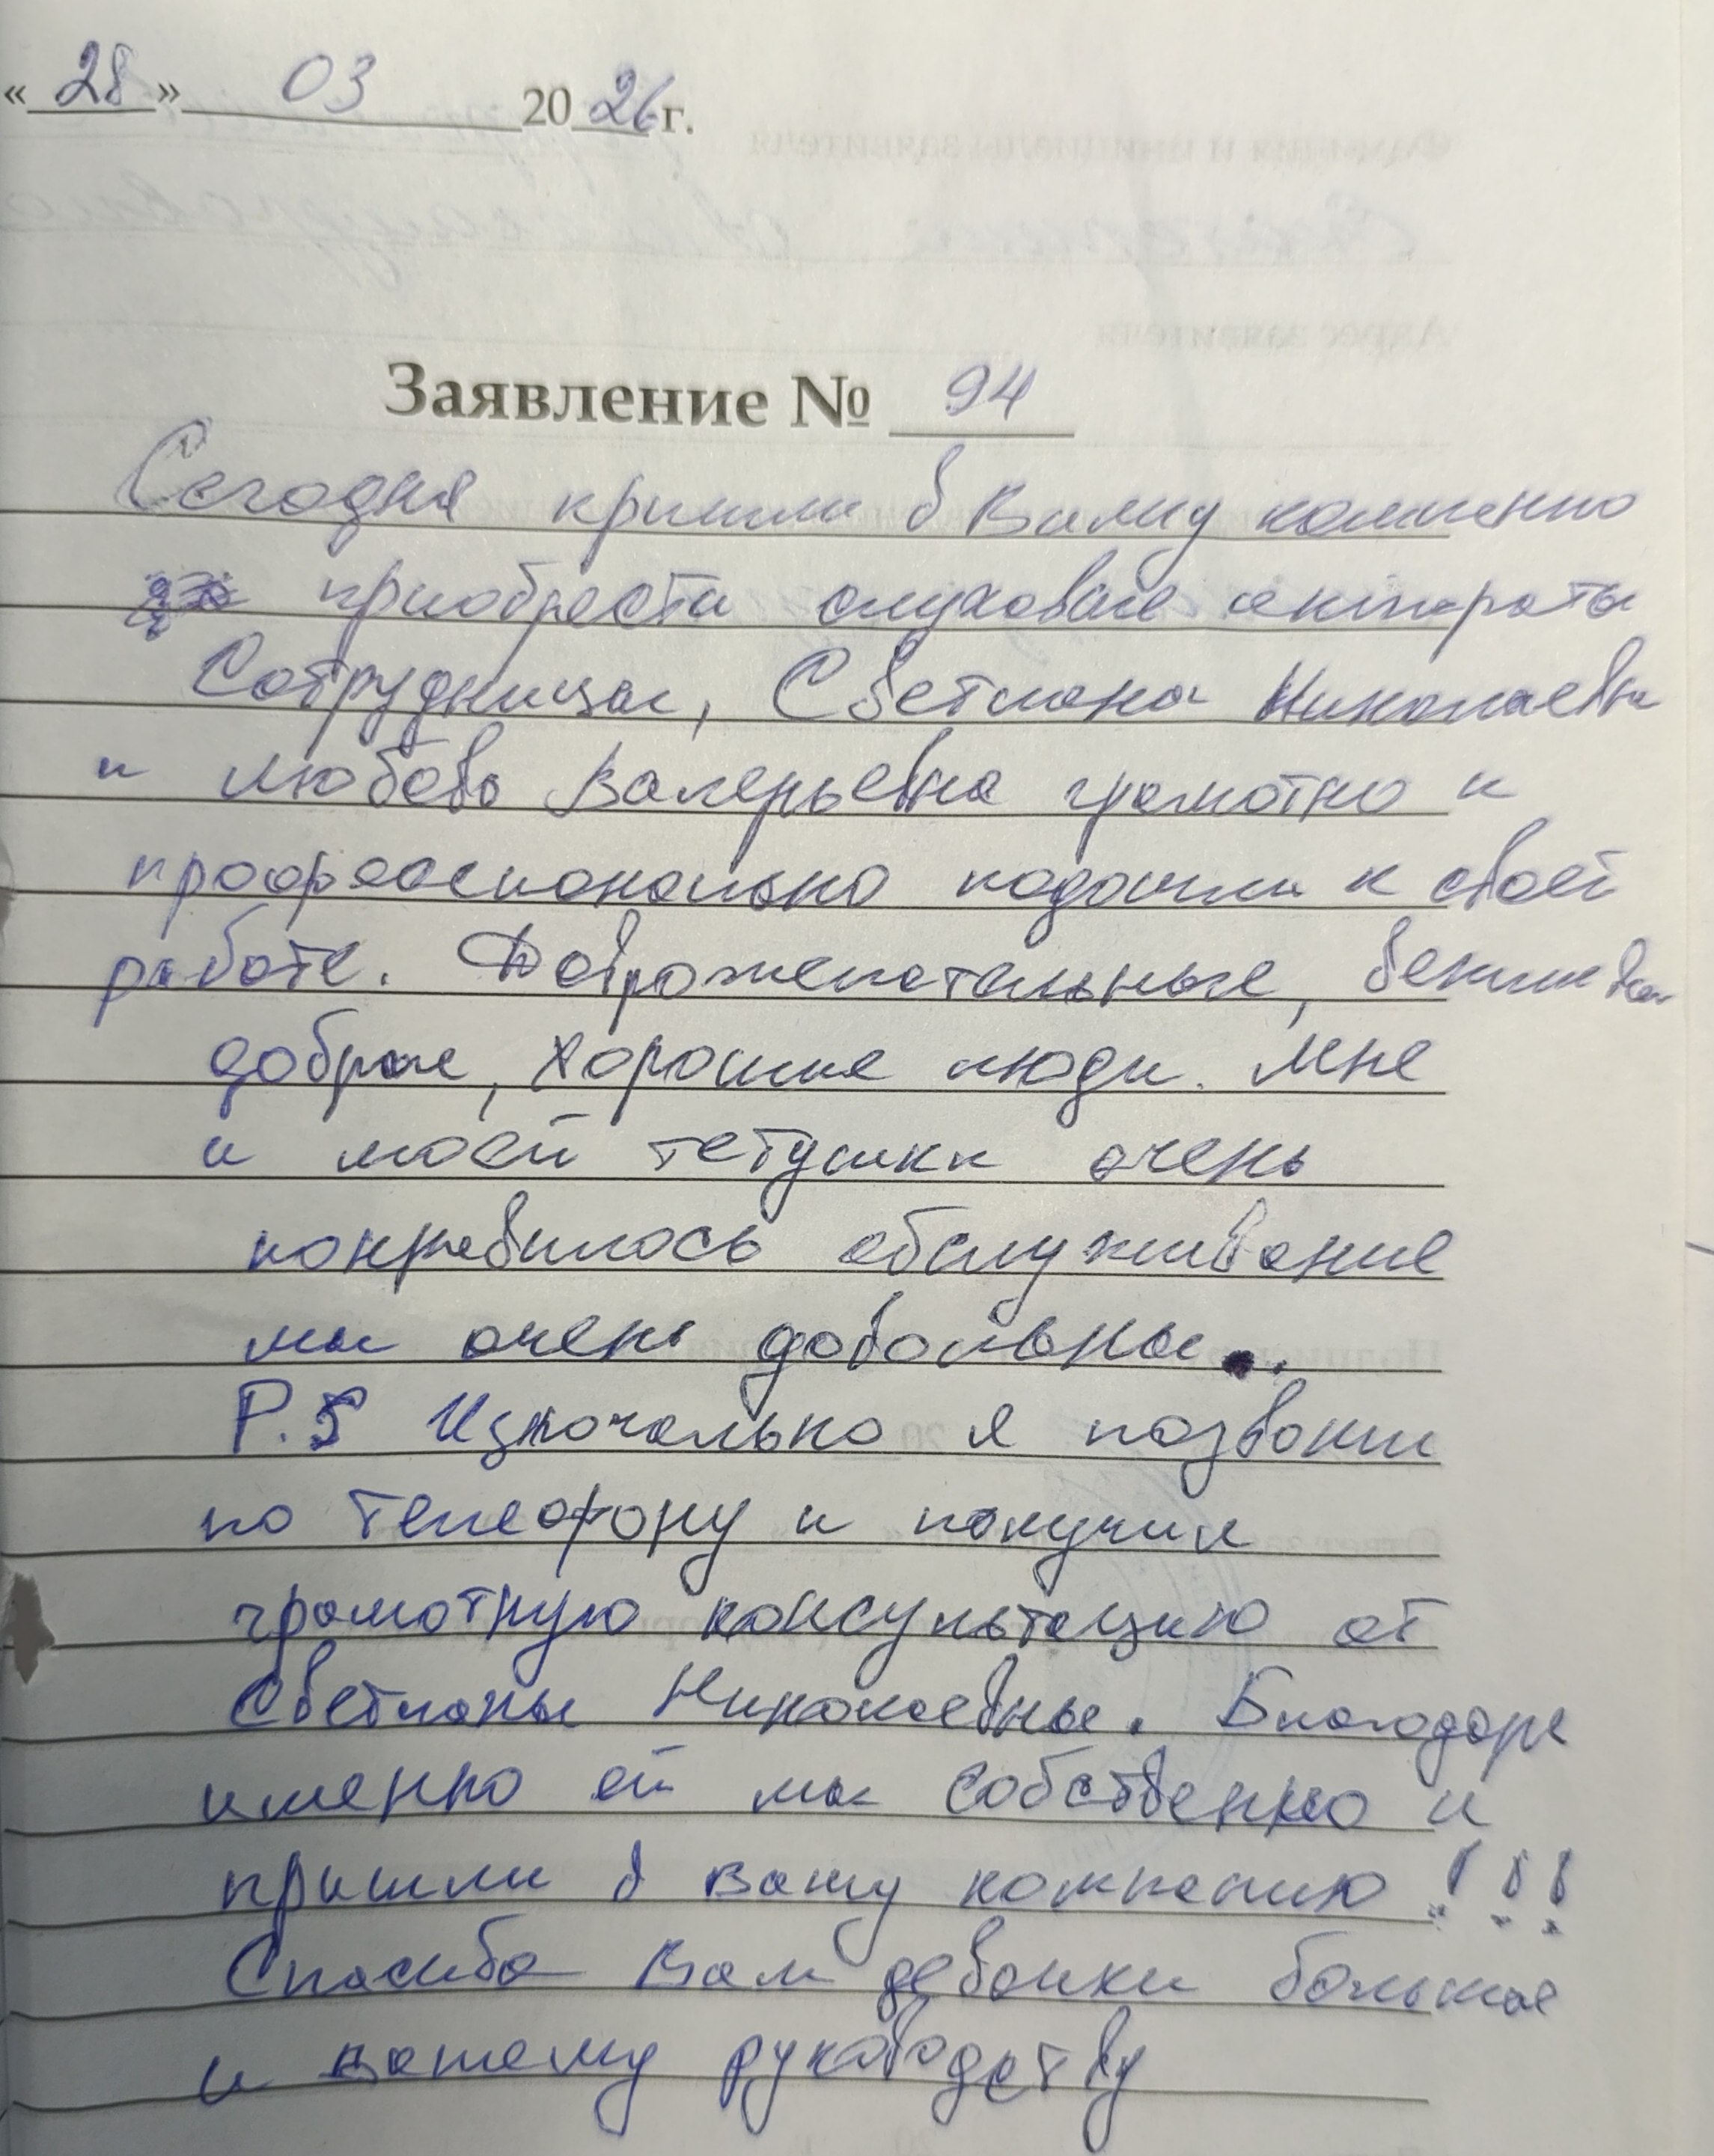 «28» 03 2026 г.
Заявление № 94
Сегодня пришли в Вашу компанию
приобрести слуховые аппараты
Сотрудницы, Светлана Николаевна
и Любовь Валерьевна грамотно и
профессионально подошли к своей
работе. Доброжелательные, вежливые
добрые, хорошие люди. Мне
и моей тетушки очень
понравилось обслуживание
мы очень довольны.
P.S Изночально я позвонил
по телефону и получил
грамотную консультацию от
Светланы Николаевны. Благодоря
именно ей мы собственно и
пришли в вашу компанию !!!
Спасибо Вам девочки большое
и вашему руководству